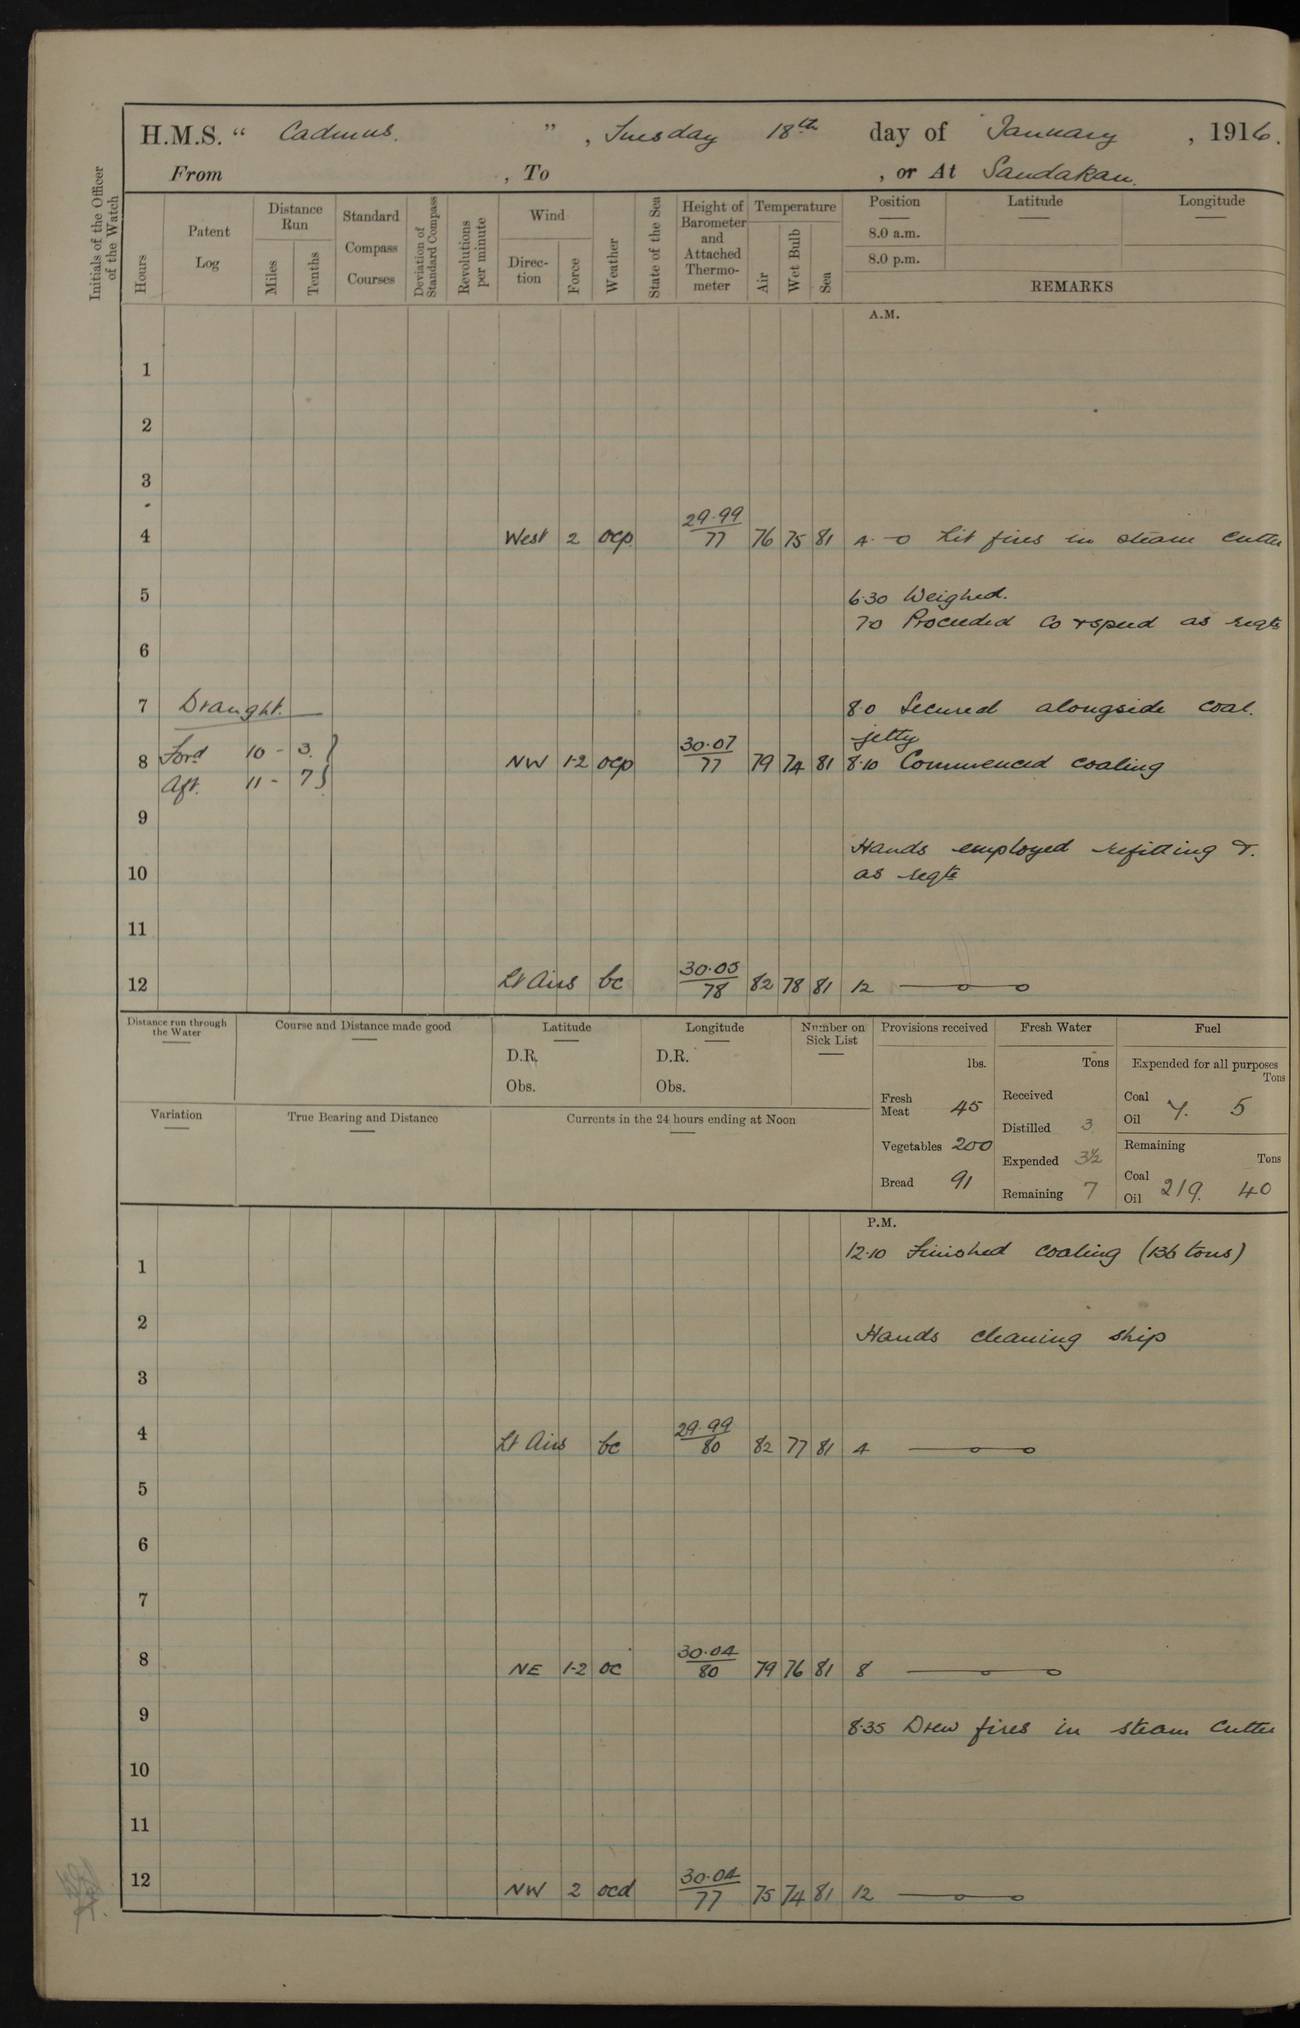 H.M.S. " Cadmus. " , Tuesday 18th day of January , 1916.
From , To , or At Sandakan.
Initials of the Officer of the Watch
Hours
Patent Log
Distance Run
Miles
Tenths
Standard Compass Courses
Deviation of Standard Compass
Revolutions per minute
Wind
Direction
Force
Weather
State of the Sea
Height of Barometer and Attached Thermometer
Temperature
Air
Wet Bulb
Sea
Position Latitude Longitude
8.0 a.m.
8.0 p.m.
REMARKS
A.M.
1
2
3
29.99
4 West 2 ocp 77 76 75 81 4-0 Lit fires in steam Cutter
5 6.30 Weighed.
7.0 Proceeded Co & speed as reqte
6
7 Draught. 8.0 Secured alongside coal
jetty
Ford 10 - 3 } 30.07
8 NW 1-2 ocp 77 79 74 81 8.10 Commenced coaling
Aft. 11 - 7 }
9
Hands employed refitting &
10 as reqte
11
30.05
12 Lt Airs bc 78 82 78 81 12
Distance run through the Water
Course and Distance made good
Latitude
D.R.
Obs.
Longitude
D.R.
Obs.
Number on Sick List
Variation
True Bearing and Distance
Currents in the 24 hours ending at Noon
Provisions received
lbs.
Fresh Meat 45
Vegetables 200
Bread 91
Fresh Water
Tons
Received
Distilled 3
Expended 3½
Remaining 7
Fuel
Expended for all purposes
Tons
Coal
Oil 7. 5
Remaining
Tons
Coal
Oil 219. 40
P.M.
12.10 Finished coaling (136 tons)
1
2 Hands cleaning ship
3
29.99
4 Lt Airs bc 80 82 77 81 4
5
6
7
30.04
8 NE 1-2 oc 80 79 76 81 8
9 8.35 Drew fires in steam Cutter
10
11
30.04
12 NW 2 ocd 77 75 74 81 12